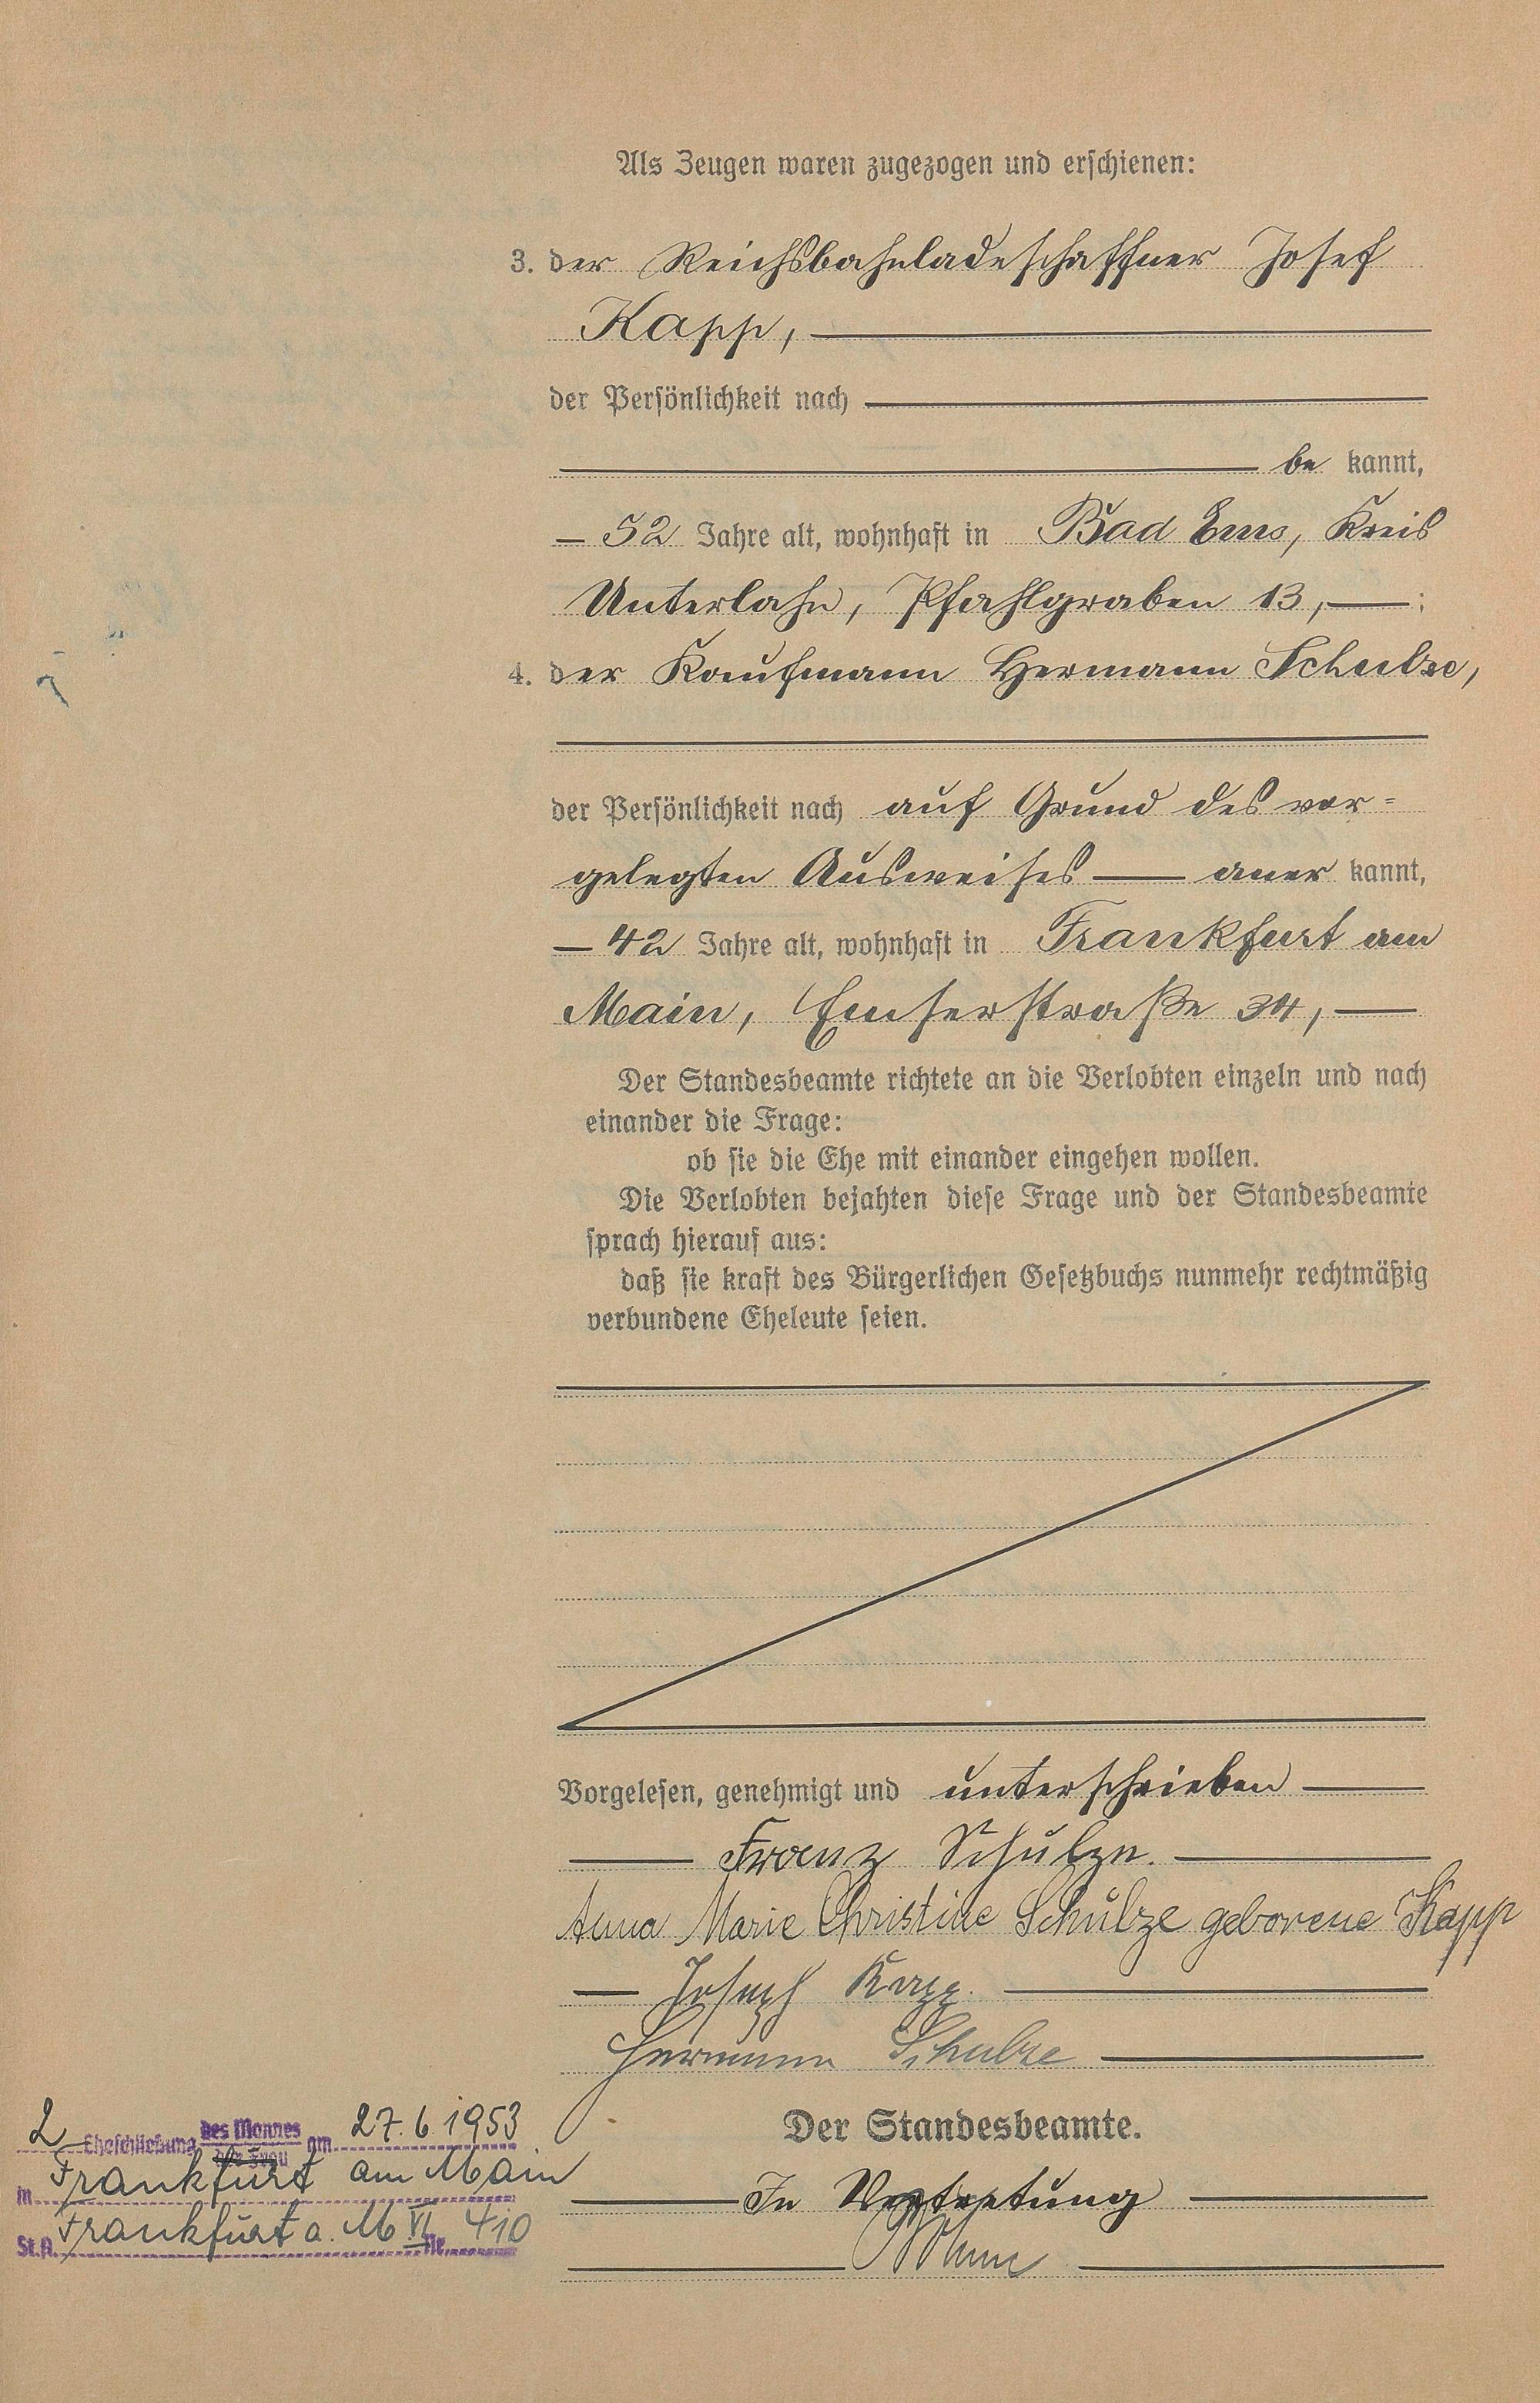 Als Zeugen waren zugezogen und erschienen:
3. der Reichsbahnladeschaffner Josef
Kapp,
der Persönlichkeit nach
be kannt,
52 Jahre alt, wohnhaft in Bad Ems, Kreis
Unterlahn, Pfahlgraben 13, ;
4. der Kaufmann Hermann Schulze,
der Persönlichkeit nach auf Grund des vor=
gelegten Ausweises aner kannt,
42 Jahre alt, wohnhaft in Frankfurt am
Main, Emserstraße 34,
Der Standesbeamte richtete an die Verlobten einzeln und nach
einander die Frage:
ob sie die Ehe mit einander eingehen wollen.
Die Verlobten bejahten diese Frage und der Standesbeamte
sprach hierauf aus:
daß sie kraft des Bürgerlichen Gesetzbuchs nunmehr rechtmäßig
verbundene Eheleute seien.
Vorgelesen, genehmigt und unterschrieben
Franz Schulze.
Anna Marie Christine Schulze geborene Kapp
Joseph Kapp.
Hermann Schulze
Der Standesbeamte.
In Vertretung
2 Eheschließung des Mannes der Frau am 27.6.1953
in Frankfurt am Main
St.A. Frankfurt a. M VI Nr. 410